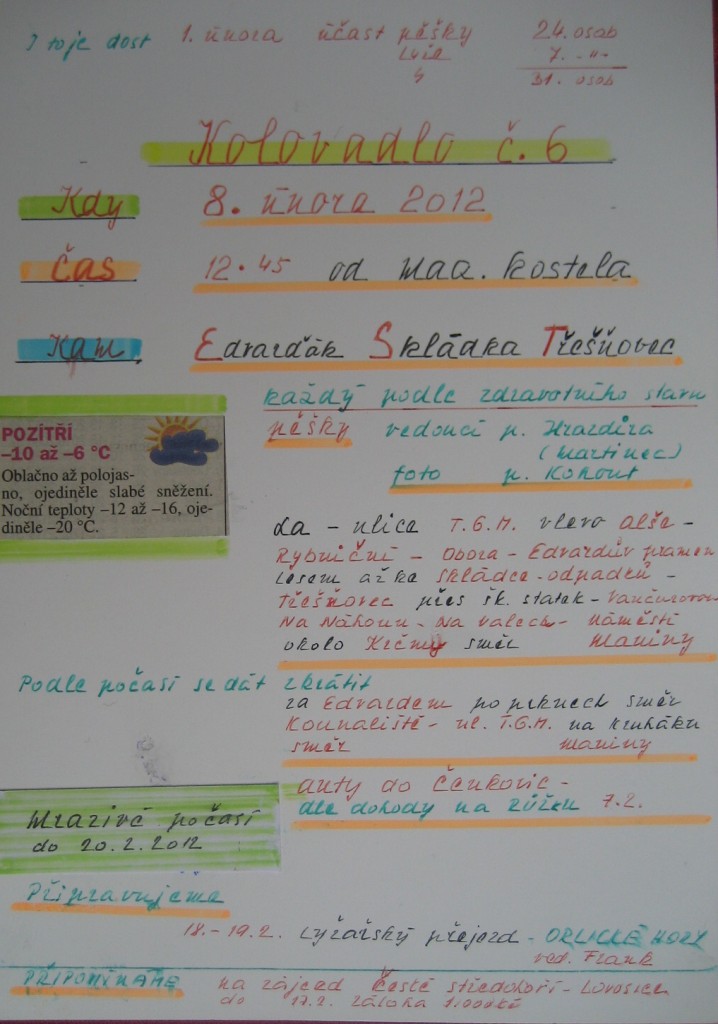 I to je dost 1. února účast pěšky 24. osob
lyže 7. -"-
31. osob
Kolovadlo č. 6
Kdy 8. února 2012
Čas 12.45 od maa. kostela
Kam Edvarďák Skládka Třešňovec
každý podle zdravotního stavu
pěšky vedoucí p. Hrazdíra
(martinec)
foto p. Kohout
POZÍTŘÍ
–10 až –6 °C
Oblačno až polojas-
no, ojediněle slabé sněžení.
Noční teploty –12 až –16, oje-
diněle –20 °C.
La - ulice T.G.M. vlevo Alše -
Rybniční - Obora - Edvardův pramen
Lesem až ke skládce - odpadků -
Třešňovec přes šk. statek - Vančurovou
Na Náhonu - Na valech - náměstí
okolo Krčmy směr maniny
Podle počasí se dát zkrátit
za Edvardem po prknech směr
Koupaliště - ul. T.G.M. na kruháku
směr maniny
auty do Čenkovic -
dle dohody na růžku 7.2.
Mrazivé počasí
do 20.2.2012
Připravujeme
18.- 19.2. Lyžařský přejezd - ORLICKÉ HORY
ved. Frank
PŘIPOMÍNÁME na zájezd České středohoří - Lovosice
do 17.2. záloha 1.000kč